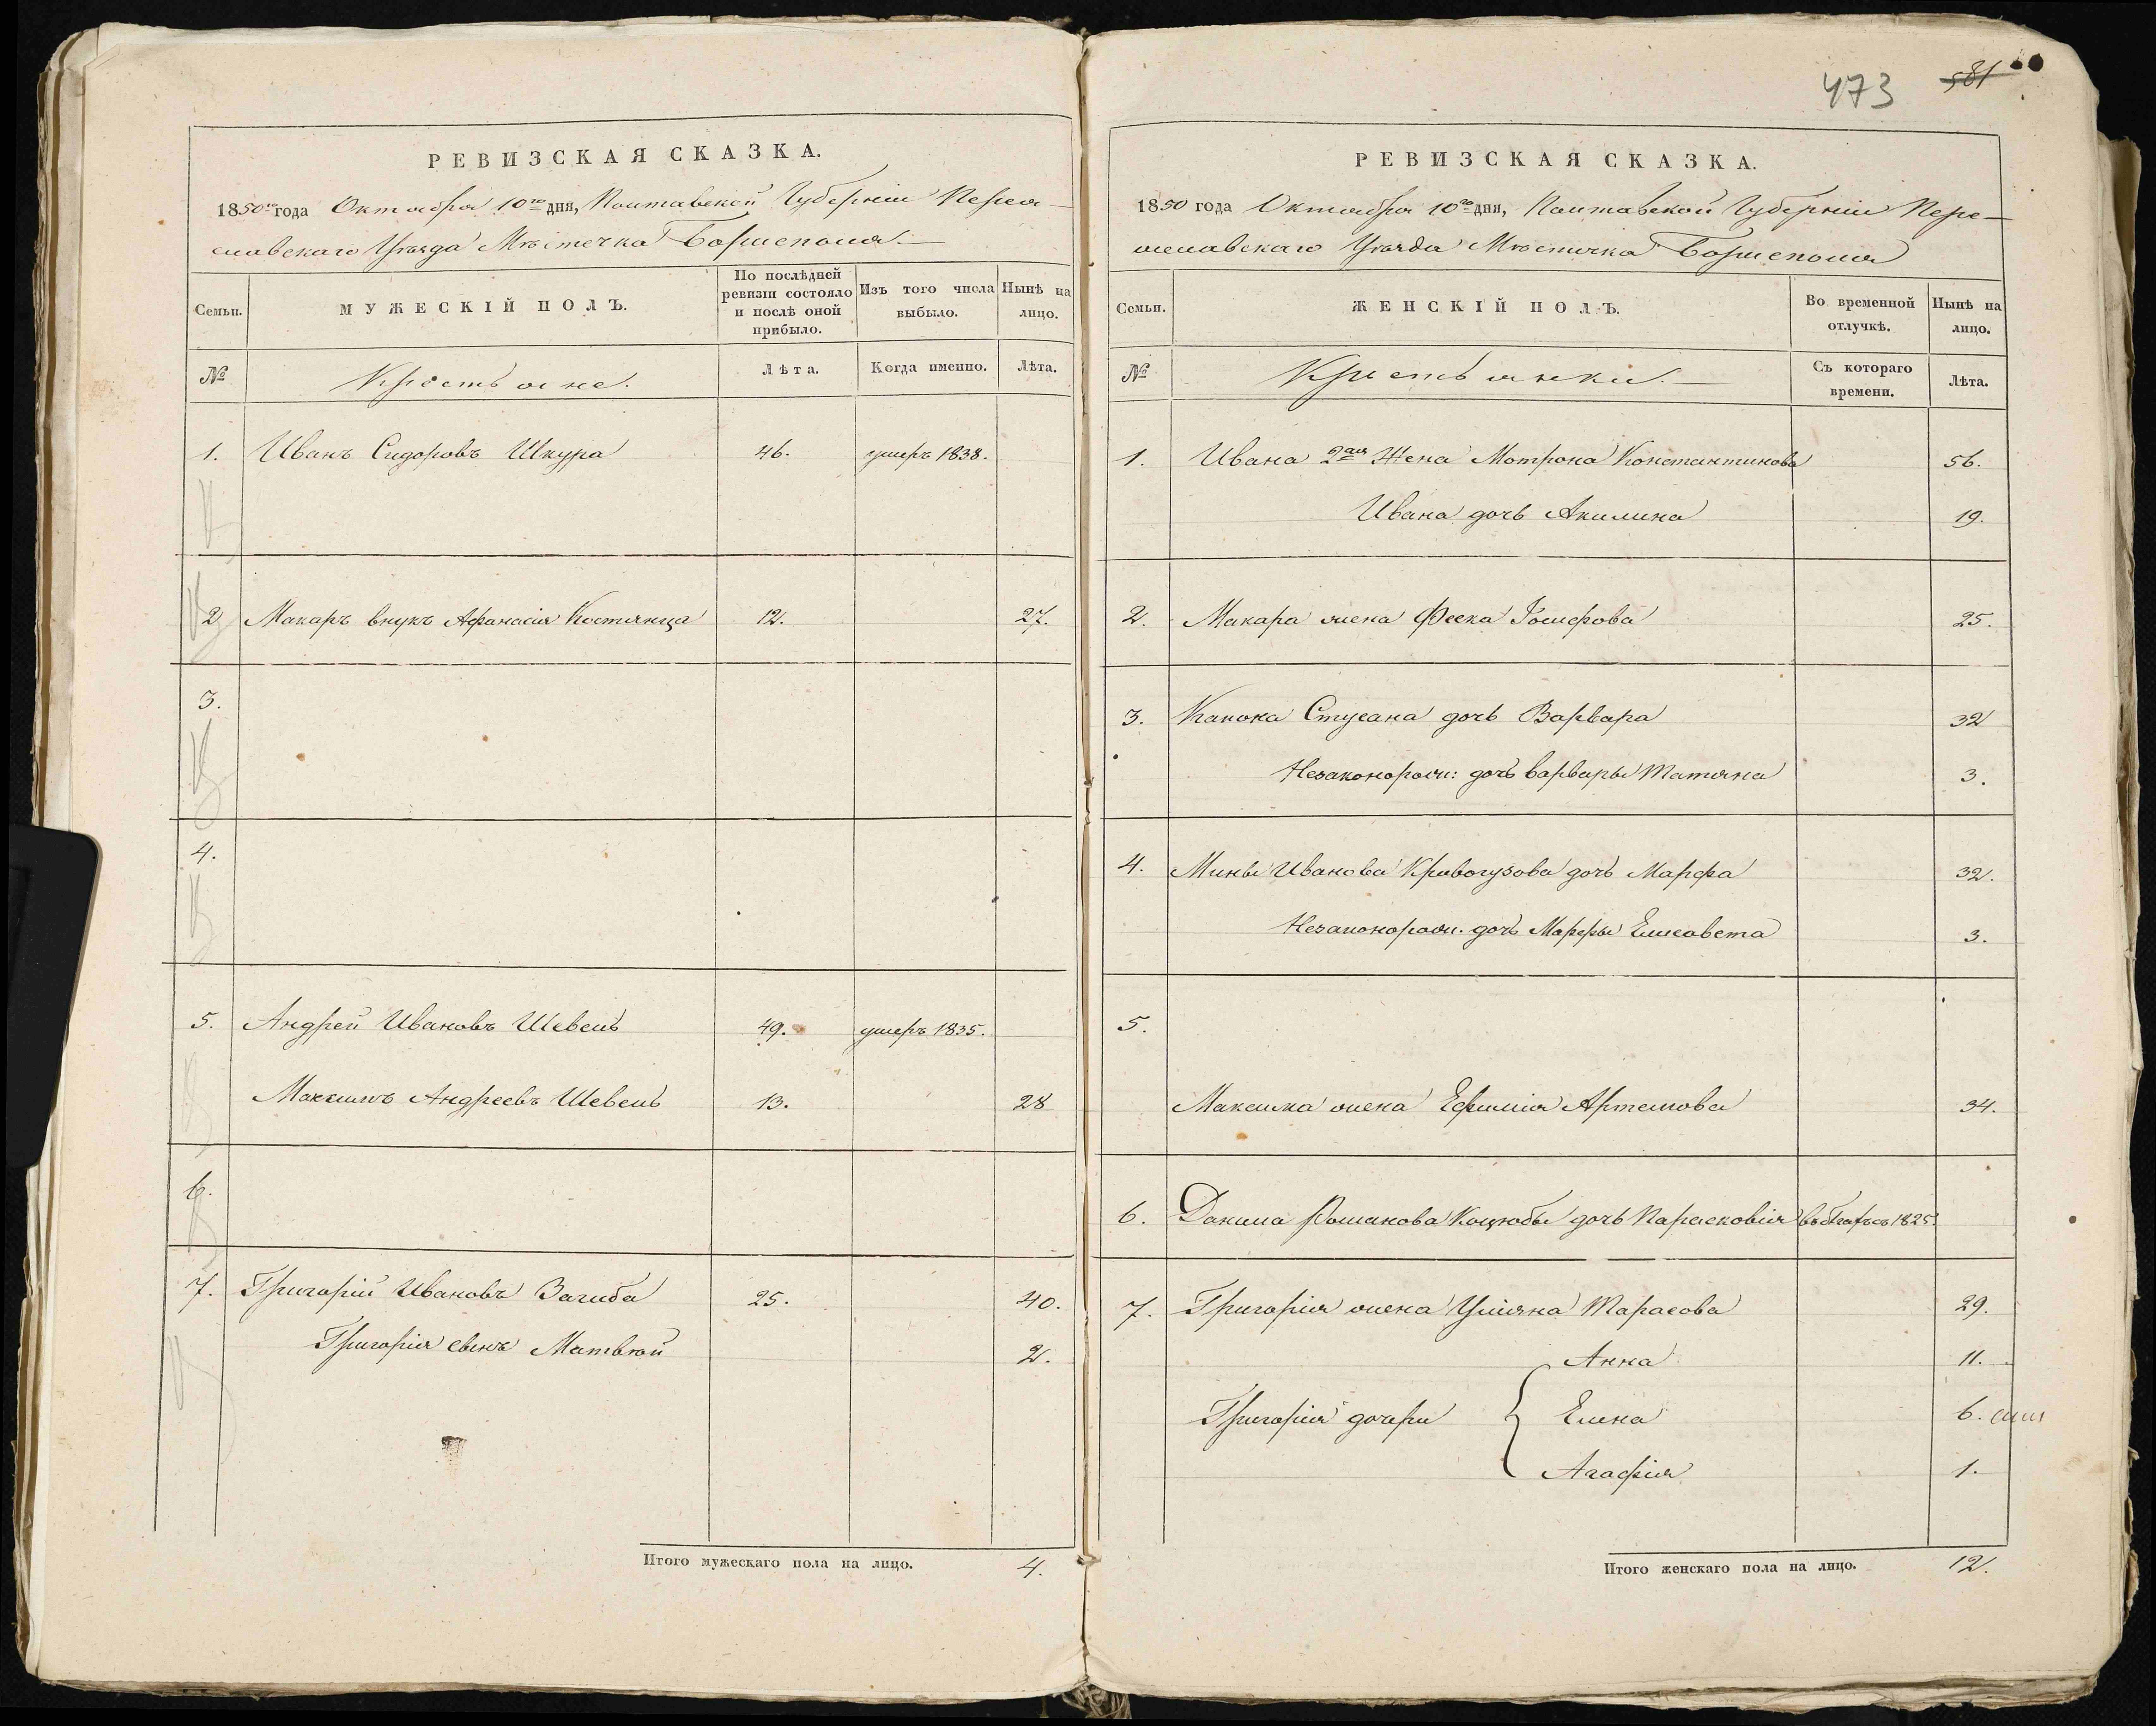 РЕВИЗСКАЯ СКАЗКА.
1850го года Октября 10го дня, Полтавской Губерніи Перея-
славскаго Уѣзда Мѣстечка Борисполя.
Семьи.
МУЖЕСКІЙ ПОЛЪ.
По послѣдней ревизіи состояло и послѣ оной прибыло.
Изъ того числа выбыло.
Нынѣ на лицо.
№
Крестьяне.
Лѣта.
Когда именно.
Лѣта.
1. Иванъ Сидоровъ Шкура 46. умеръ 1838.
2 Макаръ внукъ Афанасія Костянца 12. 27.
3.
4.
5. Андрей Ивановъ Шевель 49. умеръ 1835.
Максимъ Андреевъ Шевель 13. 28
6.
7. Григорій Ивановъ Загиба 25. 40.
Григорія сынъ Матвѣй 2.
Итого мужескаго пола на лицо. 4.
473 581
РЕВИЗСКАЯ СКАЗКА.
1850 года Октября 10го дня, Полтавской Губерніи Пере-
яславскаго Уѣзда Мѣстечка Борисполя
Семьи.
ЖЕНСКІЙ ПОЛЪ.
Во временной отлучкѣ.
Нынѣ на лицо.
№
Крестьянки.
Съ котораго времени.
Лѣта.
1. Ивана 2ая Жена Мотрона Константинова 56.
Ивана дочь Акилина 19.
2. Макара жена Феска Іосифова 25.
3. Канона Стусана дочь Варвара 32
Незаконорож: дочь Варвары Татяна 3.
4. Мины Иванова Кривогузова дочь Марфа 32.
Незаконорож. дочь Марфы Елисавета 3.
5.
Максима жена Ефимія Артемова 34.
6. Данила Романова Коцюбы дочь Парасковія 1825.
7. Григорія жена Уліяна Тарасова 29.
Анна 11.
Григорія дочери { Елена 6.
Агафія 1.
Итого женскаго пола на лицо. 12.